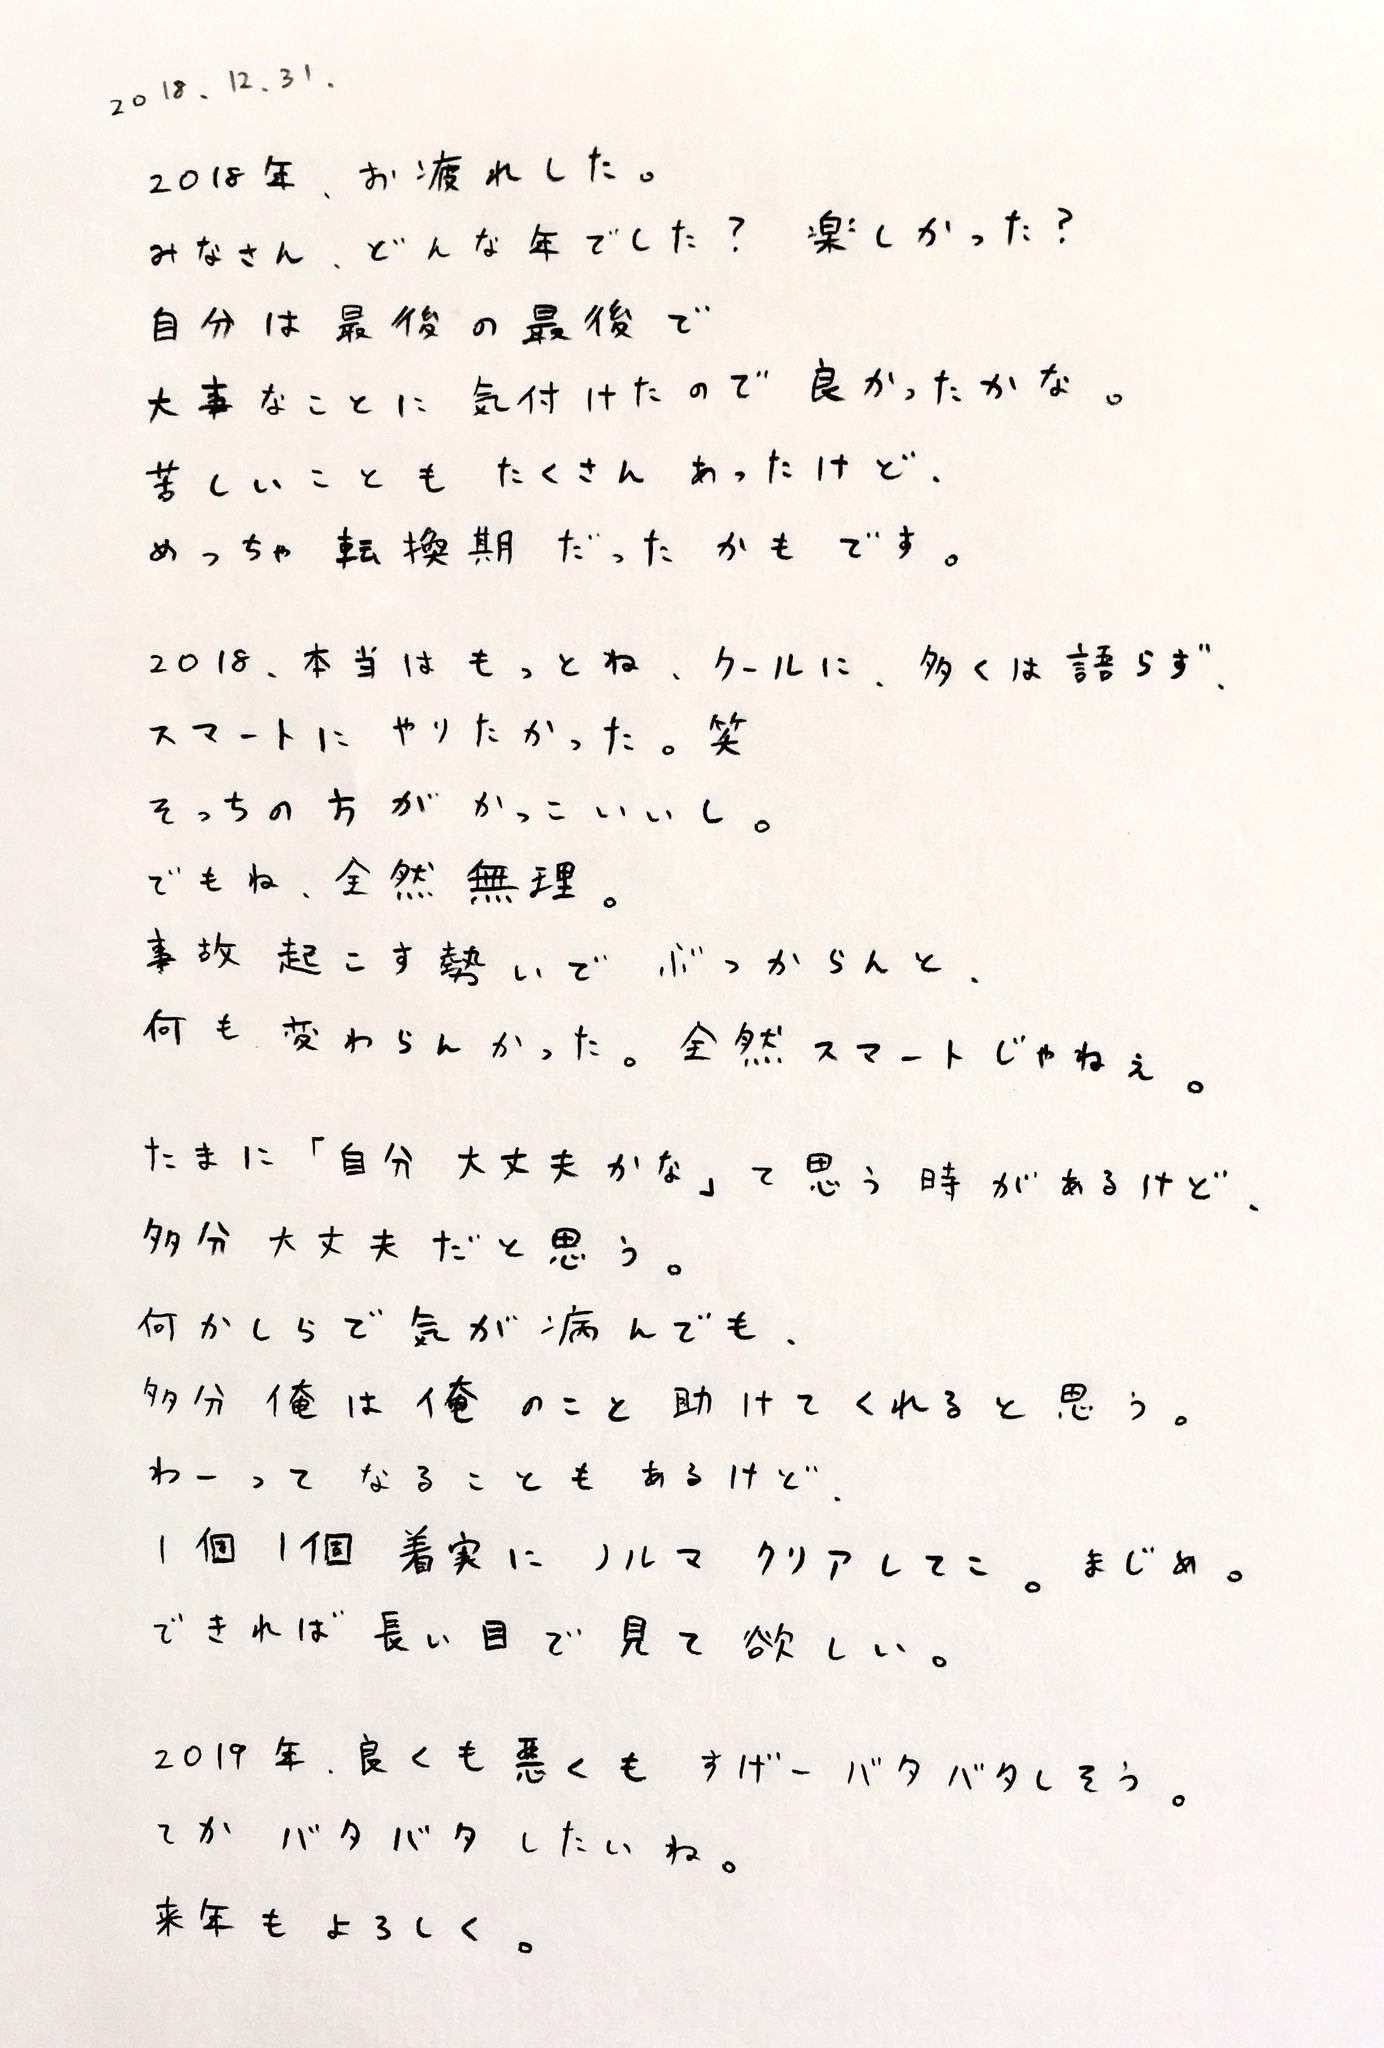 2018.12.31.
2018年、お疲れした。
みなさん、どんな年でした? 楽しかった?
自分は最後の最後で
大事なことに気付けたので良かったかな。
苦しいこともたくさんあったけど、
めっちゃ転換期だったかもです。
2018、本当はもっとね、クールに、多くは語らず、
スマートにやりたかった。笑
そっちの方がかっこいいし。
でもね、全然無理。
事故起こす勢いでぶつからんと、
何も変わらんかった。全然スマートじゃねぇ。
たまに「自分大丈夫かな」て思う時があるけど、
多分大丈夫だと思う。
何かしらで気が病んでも、
多分俺は俺のこと助けてくれると思う。
わーってなることもあるけど、
1個1個着実にノルマクリアしてこ。まじめ。
できれば長い目で見て欲しい。
2019年、良くも悪くもすげーバタバタしそう。
てかバタバタしたいね。
来年もよろしく。